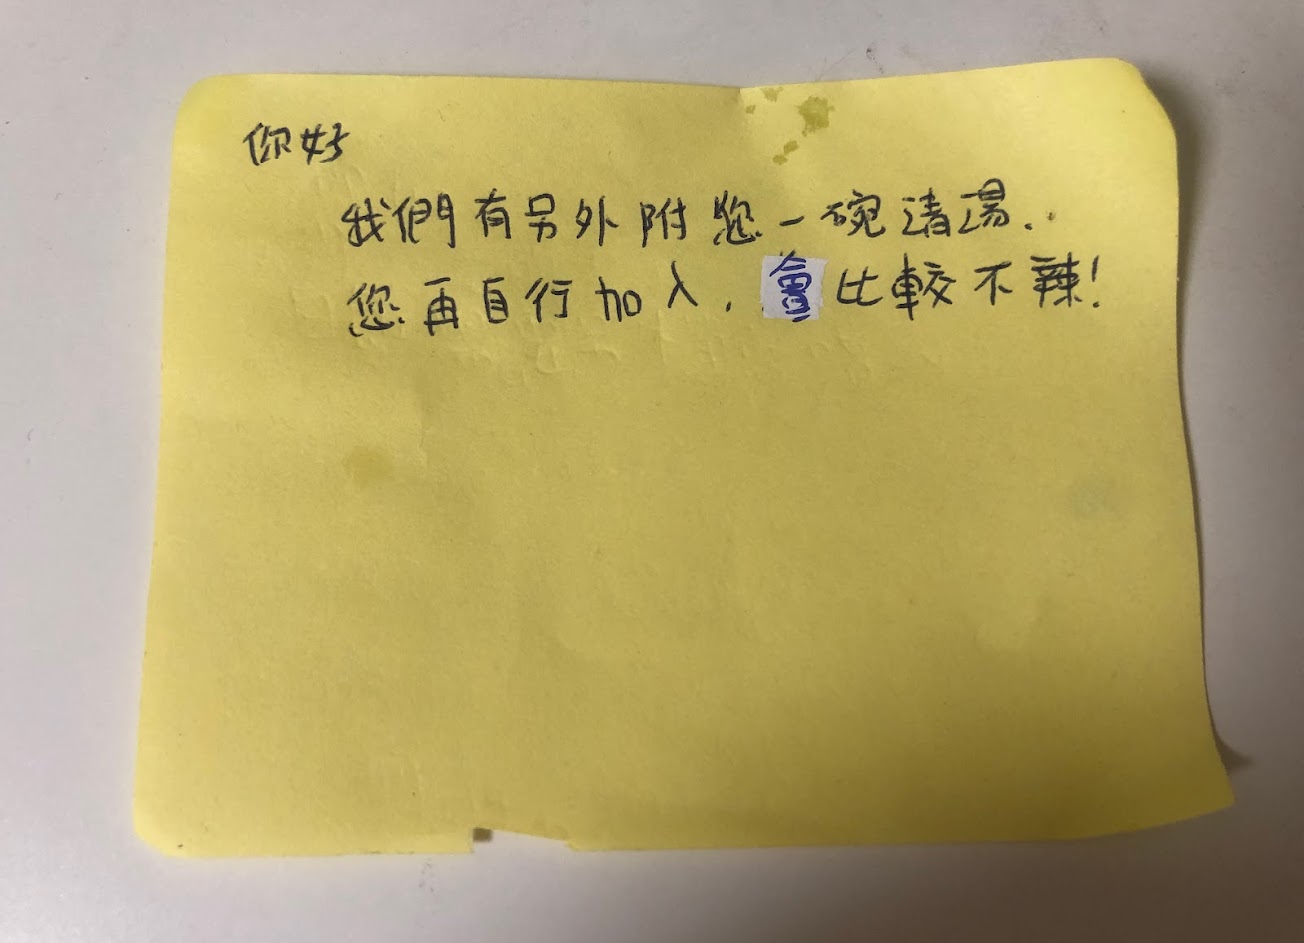 你好
我們有另外附您一碗清湯..
您再自行加入,會比較不辣!